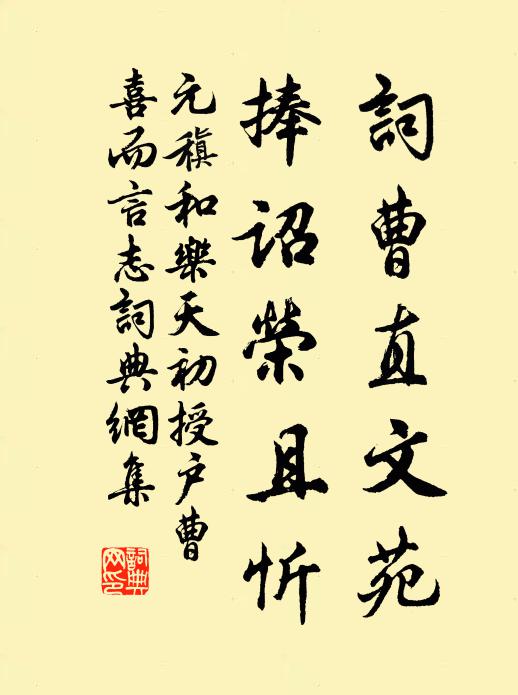 詞曹直文苑
捧詔榮且忻
元稹和樂天初授户曹
喜而言志詞典網集
詞典網印